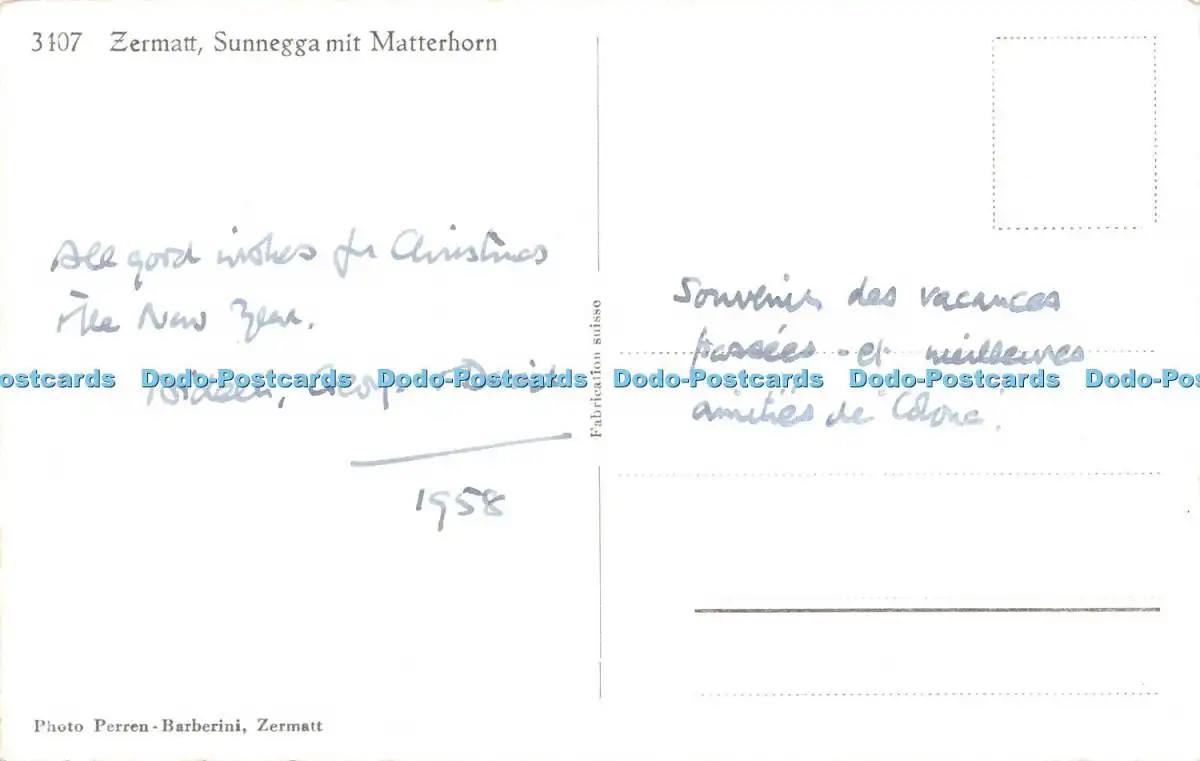 3107 Zermatt, Sunnegga mit Matterhorn
All good wishes for Christmas
The New Year.
George David
1958
Photo Perren-Barberini, Zermatt
Fabrication suisse
Souvenirs des vacances
passées et meilleures
amitiés de
ostcards Dodo-Postcards Dodo-Postcards Dodo-Postcards Dodo-Postcards Dodo-Pos